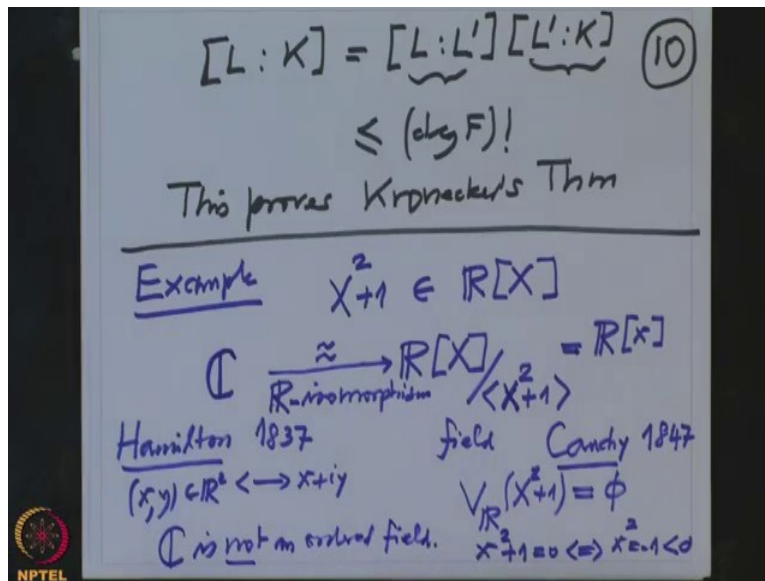 [L : K] = [L : L'] [L' : K] 10
≤ (deg F)!
This proves Kronecker's Thm
Example X²+1 ∈ ℝ[X]
ℂ ≈→ ℝ[X]/<X²+1> = ℝ[x]
ℝ-isomorphism
Hamilton 1837 field Cauchy 1847
(x,y) ∈ ℝ² <—> x+iy V_ℝ(X²+1) = ϕ
ℂ is not an ordered field. x²+1=0 <=> x²=-1<0
NPTEL